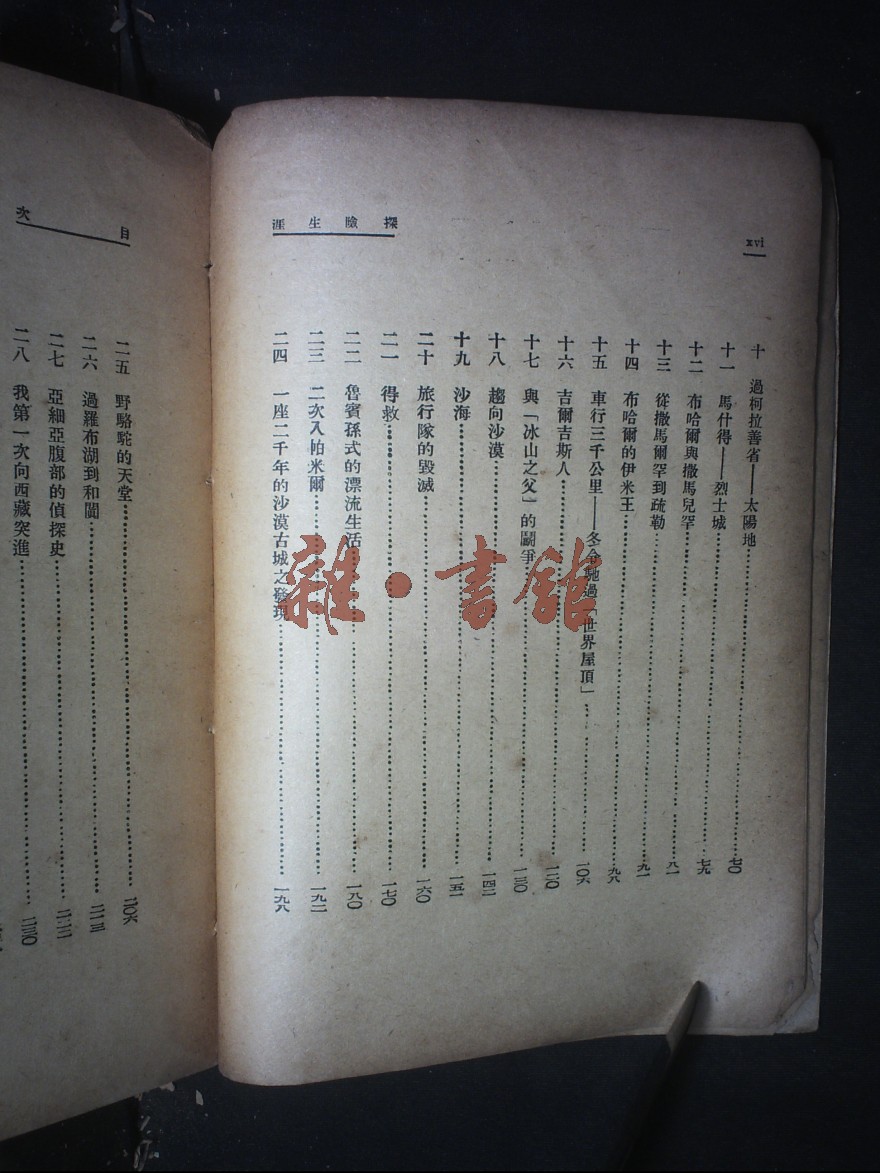 探險生涯
xvi
十 過柯拉善省——太陽地……七〇
十一 馬什得——烈士城……七九
十二 布哈爾與撒馬兒罕……八一
十三 從撒馬爾罕到疏勒……九一
十四 布哈爾的伊米王……九八
十五 車行三千公里——冬令馳過「世界屋頂」……一〇六
十六 吉爾吉斯人……一二〇
十七 與「冰山之父」的鬪爭……一三〇
十八 趨向沙漠……一四二
十九 沙海……一五一
二十 旅行隊的毀滅……一六〇
二一 得救……一七〇
二二 魯賓孫式的漂流生活……一八〇
二三 二次入帕米爾……一九二
二四 一座二千年的沙漠古城之發現……一九八
目次
二五 野駱駝的天堂……二〇六
二六 過羅布湖到和闐……二一三
二七 亞細亞腹部的偵探史……二二二
二八 我第一次向西藏突進……二三〇
雜·書館